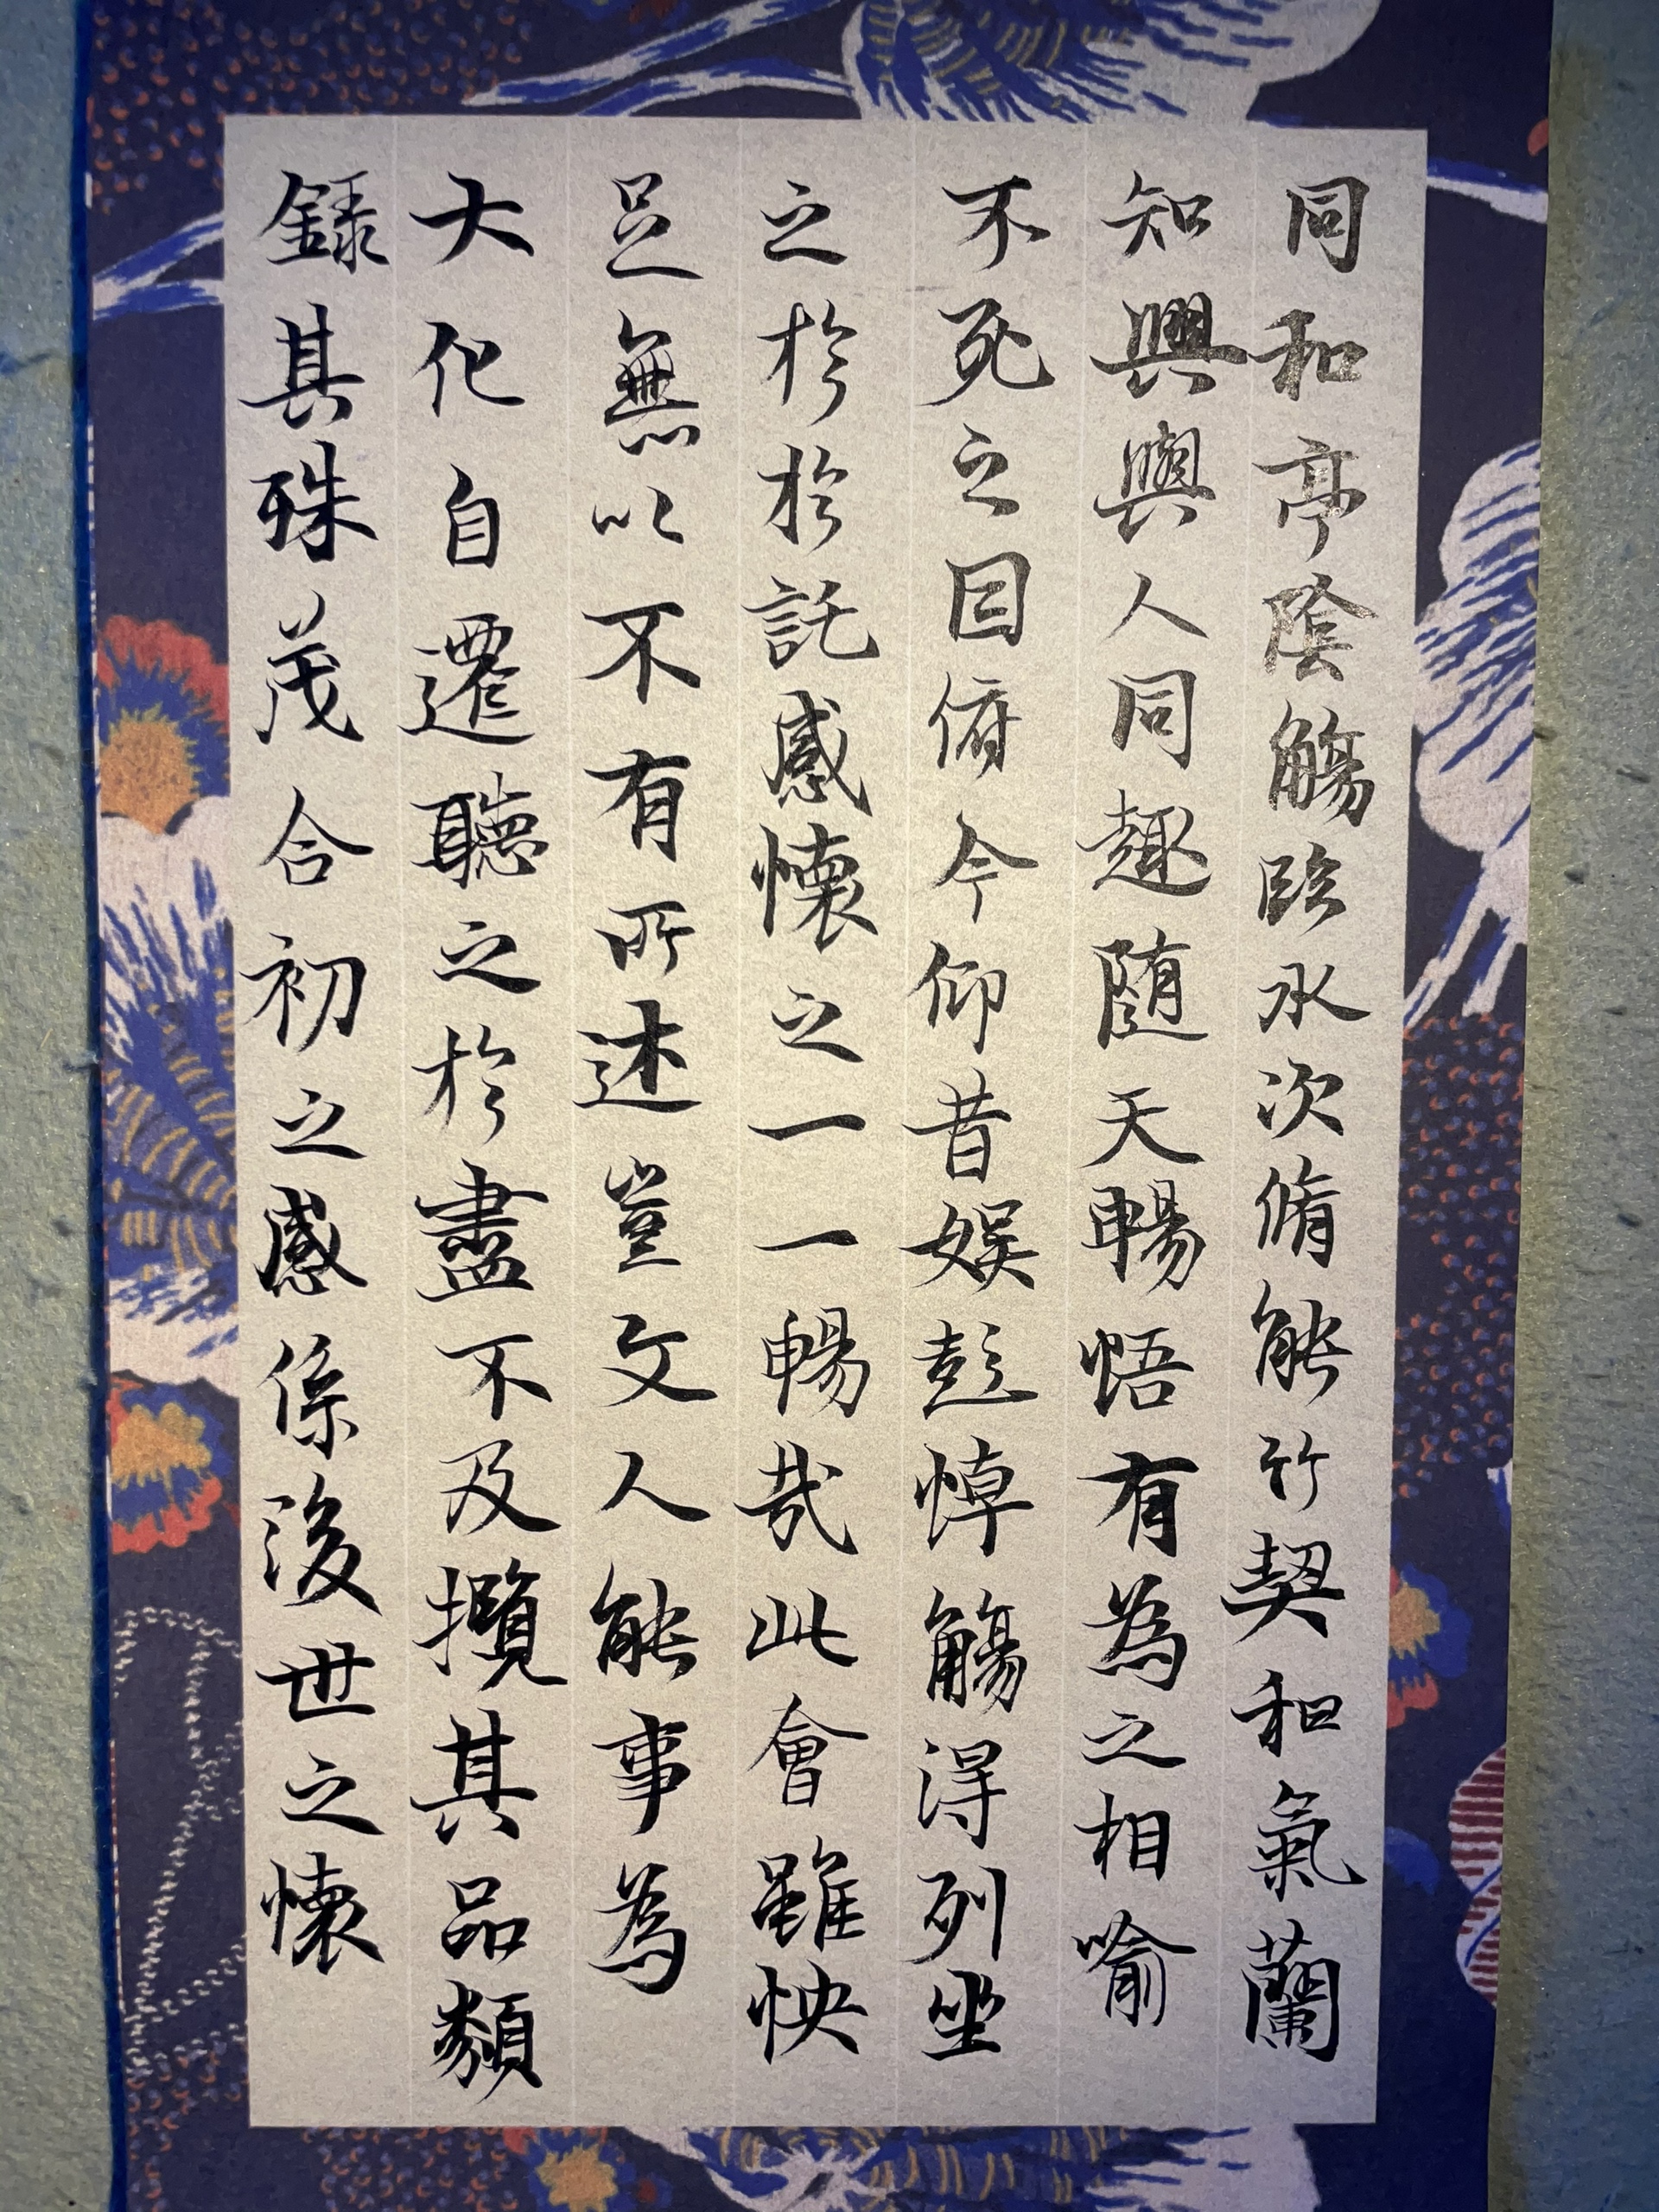 同和亭陰觴臨水次脩能竹契和氣蘭
知興與人同趣随天暢悟有為之相喻
不死之因俯今仰昔娛彭悼觴得列坐
之於於託感懷之一一暢哉此會雖快
足無以不有所述豈文人能事為
大化自遷聽之於盡不及攬其品類
録其殊茂合初之感係後世之懷